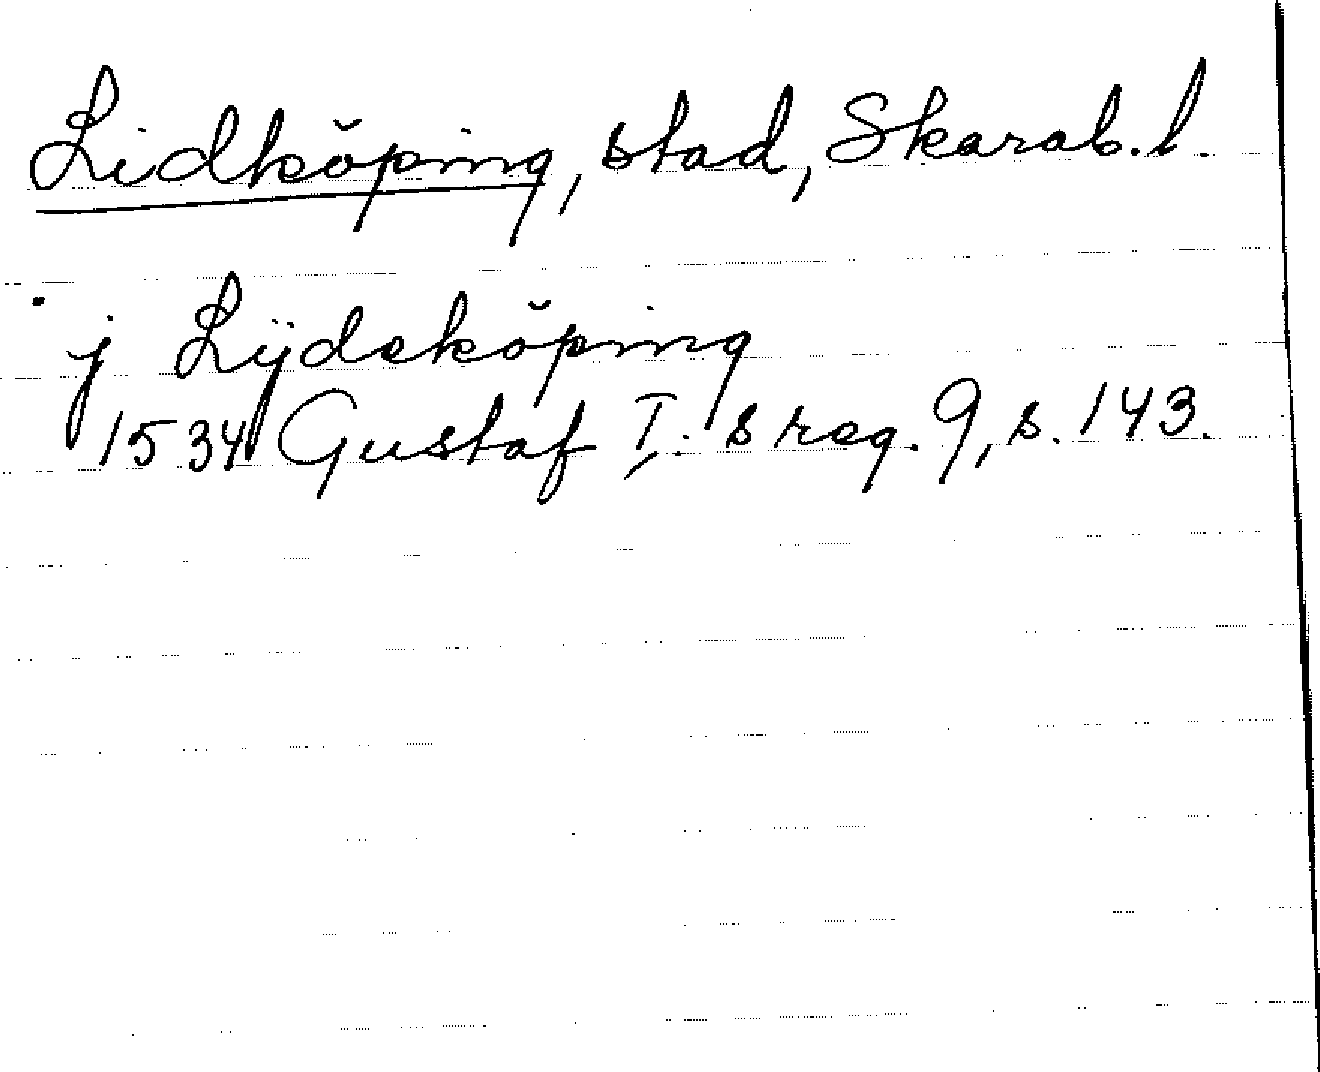 Lidköping, stad, Skarab.l.
j Lÿdeköping
1534 Gustaf I:s reg. 9, s. 143.